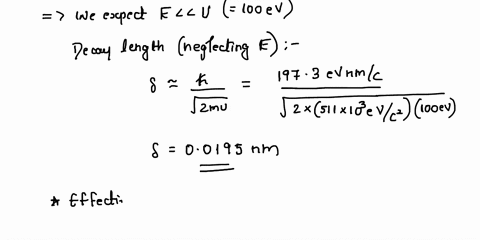 => We expect E << U (= 100 eV)
Decay length (neglecting E) :-
δ ≈ ℏ / √2mU = 197.3 eV nm/c / √2 × (511 × 10³ eV/c²) (100 eV)
δ = 0.0195 nm
* Effecti